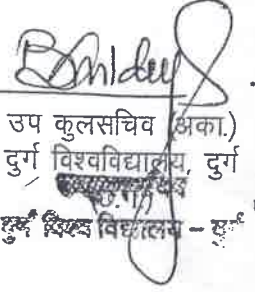 उप कुलसचिव (अका.)
दुर्ग विश्वविद्यालय, दुर्ग
(छ.ग.)
दुर्ग विश्व विद्यालय - दुर्ग